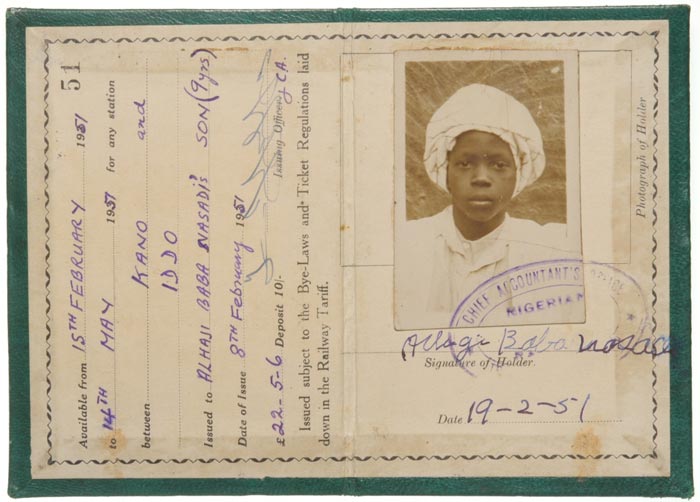 51
Available from 15TH FEBRUARY 1951
to 14TH MAY 1951 for any station
between KANO and
IDDO
Issued to ALHAJI BABA NASADI'S SON (9yrs)
Date of Issue 8TH February 1951
Issuing Officer CA.
£22-5-6 Deposit 10/-
Issued subject to the Bye-Laws and Ticket Regulations laid
down in the Railway Tariff.
Photograph of Holder
CHIEF ACCOUNTANT'S OFFICE
NIGERIAN
Baba
Signature of Holder.
Date 19-2-51